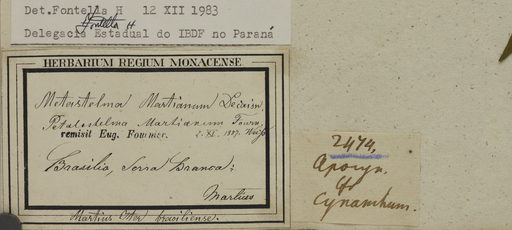 Det. Fontella H 12 XII 1983
Fontella H
Delegacia Estadual do IBDF no Paraná
HERBARIUM REGIUM MONACENSE
Metastelma Martianum Decaisn.
Petalostelma Martianum Fourn.
remisit Eug. Fournier. 2. XI. 1887.
Brasilia, Serra Branca;
Martius
Martius Iter brasiliense.
2474,
Apocyn.
Cynanchum.